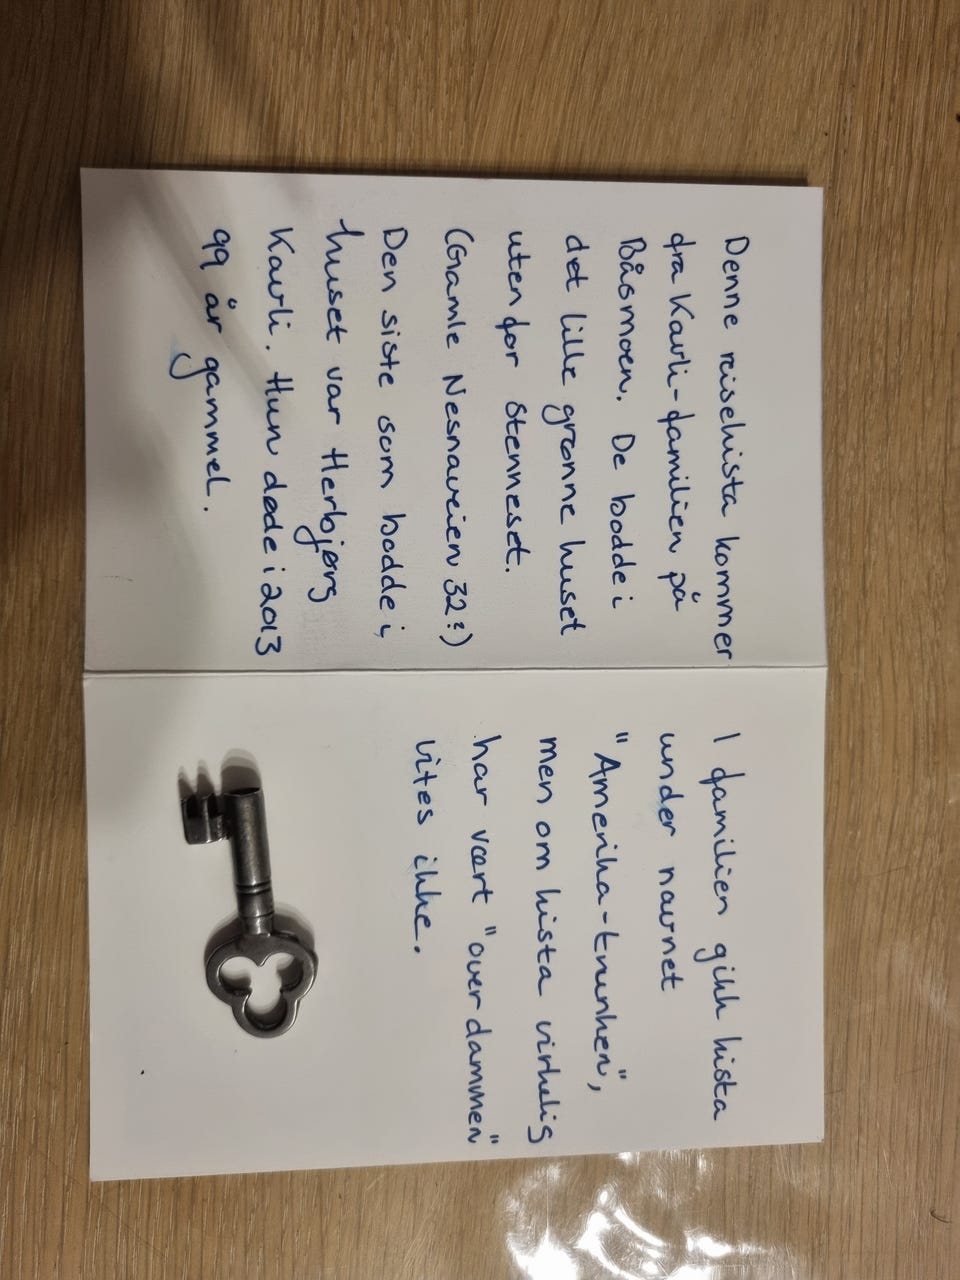 Denne reisekista kommer
fra Kavli-familien på
Båsmoen. De bodde i
det lille grønne huset
utenfor Stenneset.
(Gamle Nesnaveien 32?)
Den siste som bodde i
huset var Herbjørg
Kavli. Hun døde i 2013
99 år gammel.
I familien gikk kista
under navnet
"Amerika-trunken",
men om kista virkelig
har vært "over dammen"
vites ikke.